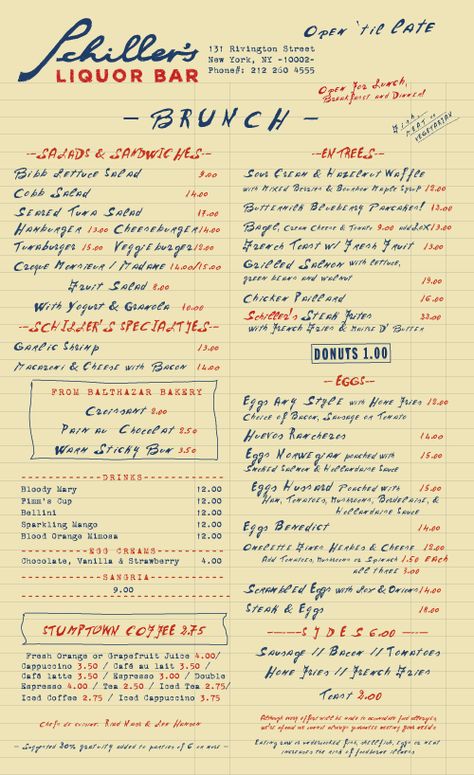 Schiller's
LIQUOR BAR
131 Rivington Street
New York, NY -10002-
Phone#: 212 260 4555
Open 'til LATE
Open for Lunch,
Breakfast and Dinner!
Fish
MEAT or
VEGETARIAN
- BRUNCH -
--SALADS & SANDWICHES--
Bibb Lettuce Salad 9.00
Cobb Salad 14.00
Seared Tuna Salad 17.00
Hamburger 13.00 Cheeseburger 14.00
Tunaburger 15.00 Veggieburger 12.00
Croque Monsieur / Madame 14.00/15.00
Fruit Salad 8.00
With Yogurt & Granola 10.00
--SCHILLER'S SPECIALTYES--
Garlic Shrimp 13.00
Macaroni & Cheese with Bacon 14.00
FROM BALTHAZAR BAKERY
Croissant 2.00
Pain au Chocolat 2.50
Warm Sticky Bun 3.50
DRINKS
Bloody Mary 12.00
Pimm's Cup 12.00
Bellini 12.00
Sparkling Mango 12.00
Blood Orange Mimosa 12.00
EGG CREAMS
Chocolate, Vanilla & Strawberry 4.00
SANGRIA
9.00
STUMPTOWN COFFEE 2.75
Fresh Orange or Grapefruit Juice 4.00/
Cappuccino 3.50 / Café au lait 3.50 /
Café latte 3.50 / Espresso 3.00 / Double
Espresso 4.00 / Tea 2.50 / Iced Tea 2.75/
Iced Coffee 2.75 / Iced Cappuccino 3.75
Chefs de cuisine:
- Suggested 20% gratuity added to parties of 6 or more -
--ENTREES--
Sour Cream & Hazelnut Waffle
with Mixed Berries & Bourbon Maple Syrup 12.00
Buttermilk Blueberry Pancakes! 12.00
Bagel, Cream Cheese & Tomato 9.00 add Lox! 13.00
French Toast w/ Fresh Fruit 13.00
Grilled Salmon with lettuce,
green beans and walnut 19.00
Chicken Paillard 16.00
Schiller's Steak Frites
with French Fries & Maitre D' Butter
DONUTS 1.00
--EGGS--
Eggs Any Style with Home Fries 12.00
Choice of Bacon, Sausage or Tomato
Huevos Rancheros 14.00
Eggs Norwegian poached with 15.00
Smoked Salmon & Hollandaise Sauce
Eggs Hussard Poached with 15.00
Ham, Tomatoes, Mushrooms, Bordelaise, &
Hollandaise Sauce
Eggs Benedict 14.00
Omelette Fines Herbes & Cheese 12.00
Add Tomatoes, Mushrooms or Spinach 1.50 each
all three 3.00
Scrambled Eggs with Lox & Onions 14.00
Steak & Eggs 18.00
SYDES 6.00
Sausage // Bacon // Tomatoes
Home Fries // French Fries
Toast 2.00
Although every effort will be made to accommodate food allergies,
we're afraid we cannot always guarantee meeting your needs
Eating raw or undercooked fish, shellfish, eggs or meat
increases the risk of foodborne illness